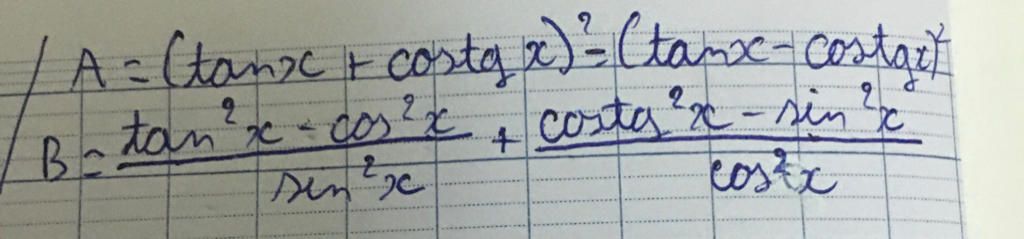 A = (tanx + costg x)² - (tanx - costgx)²
B = (tan²x - cos²x)/(sin²x) + (costg²x - sin²x)/(cos²x)